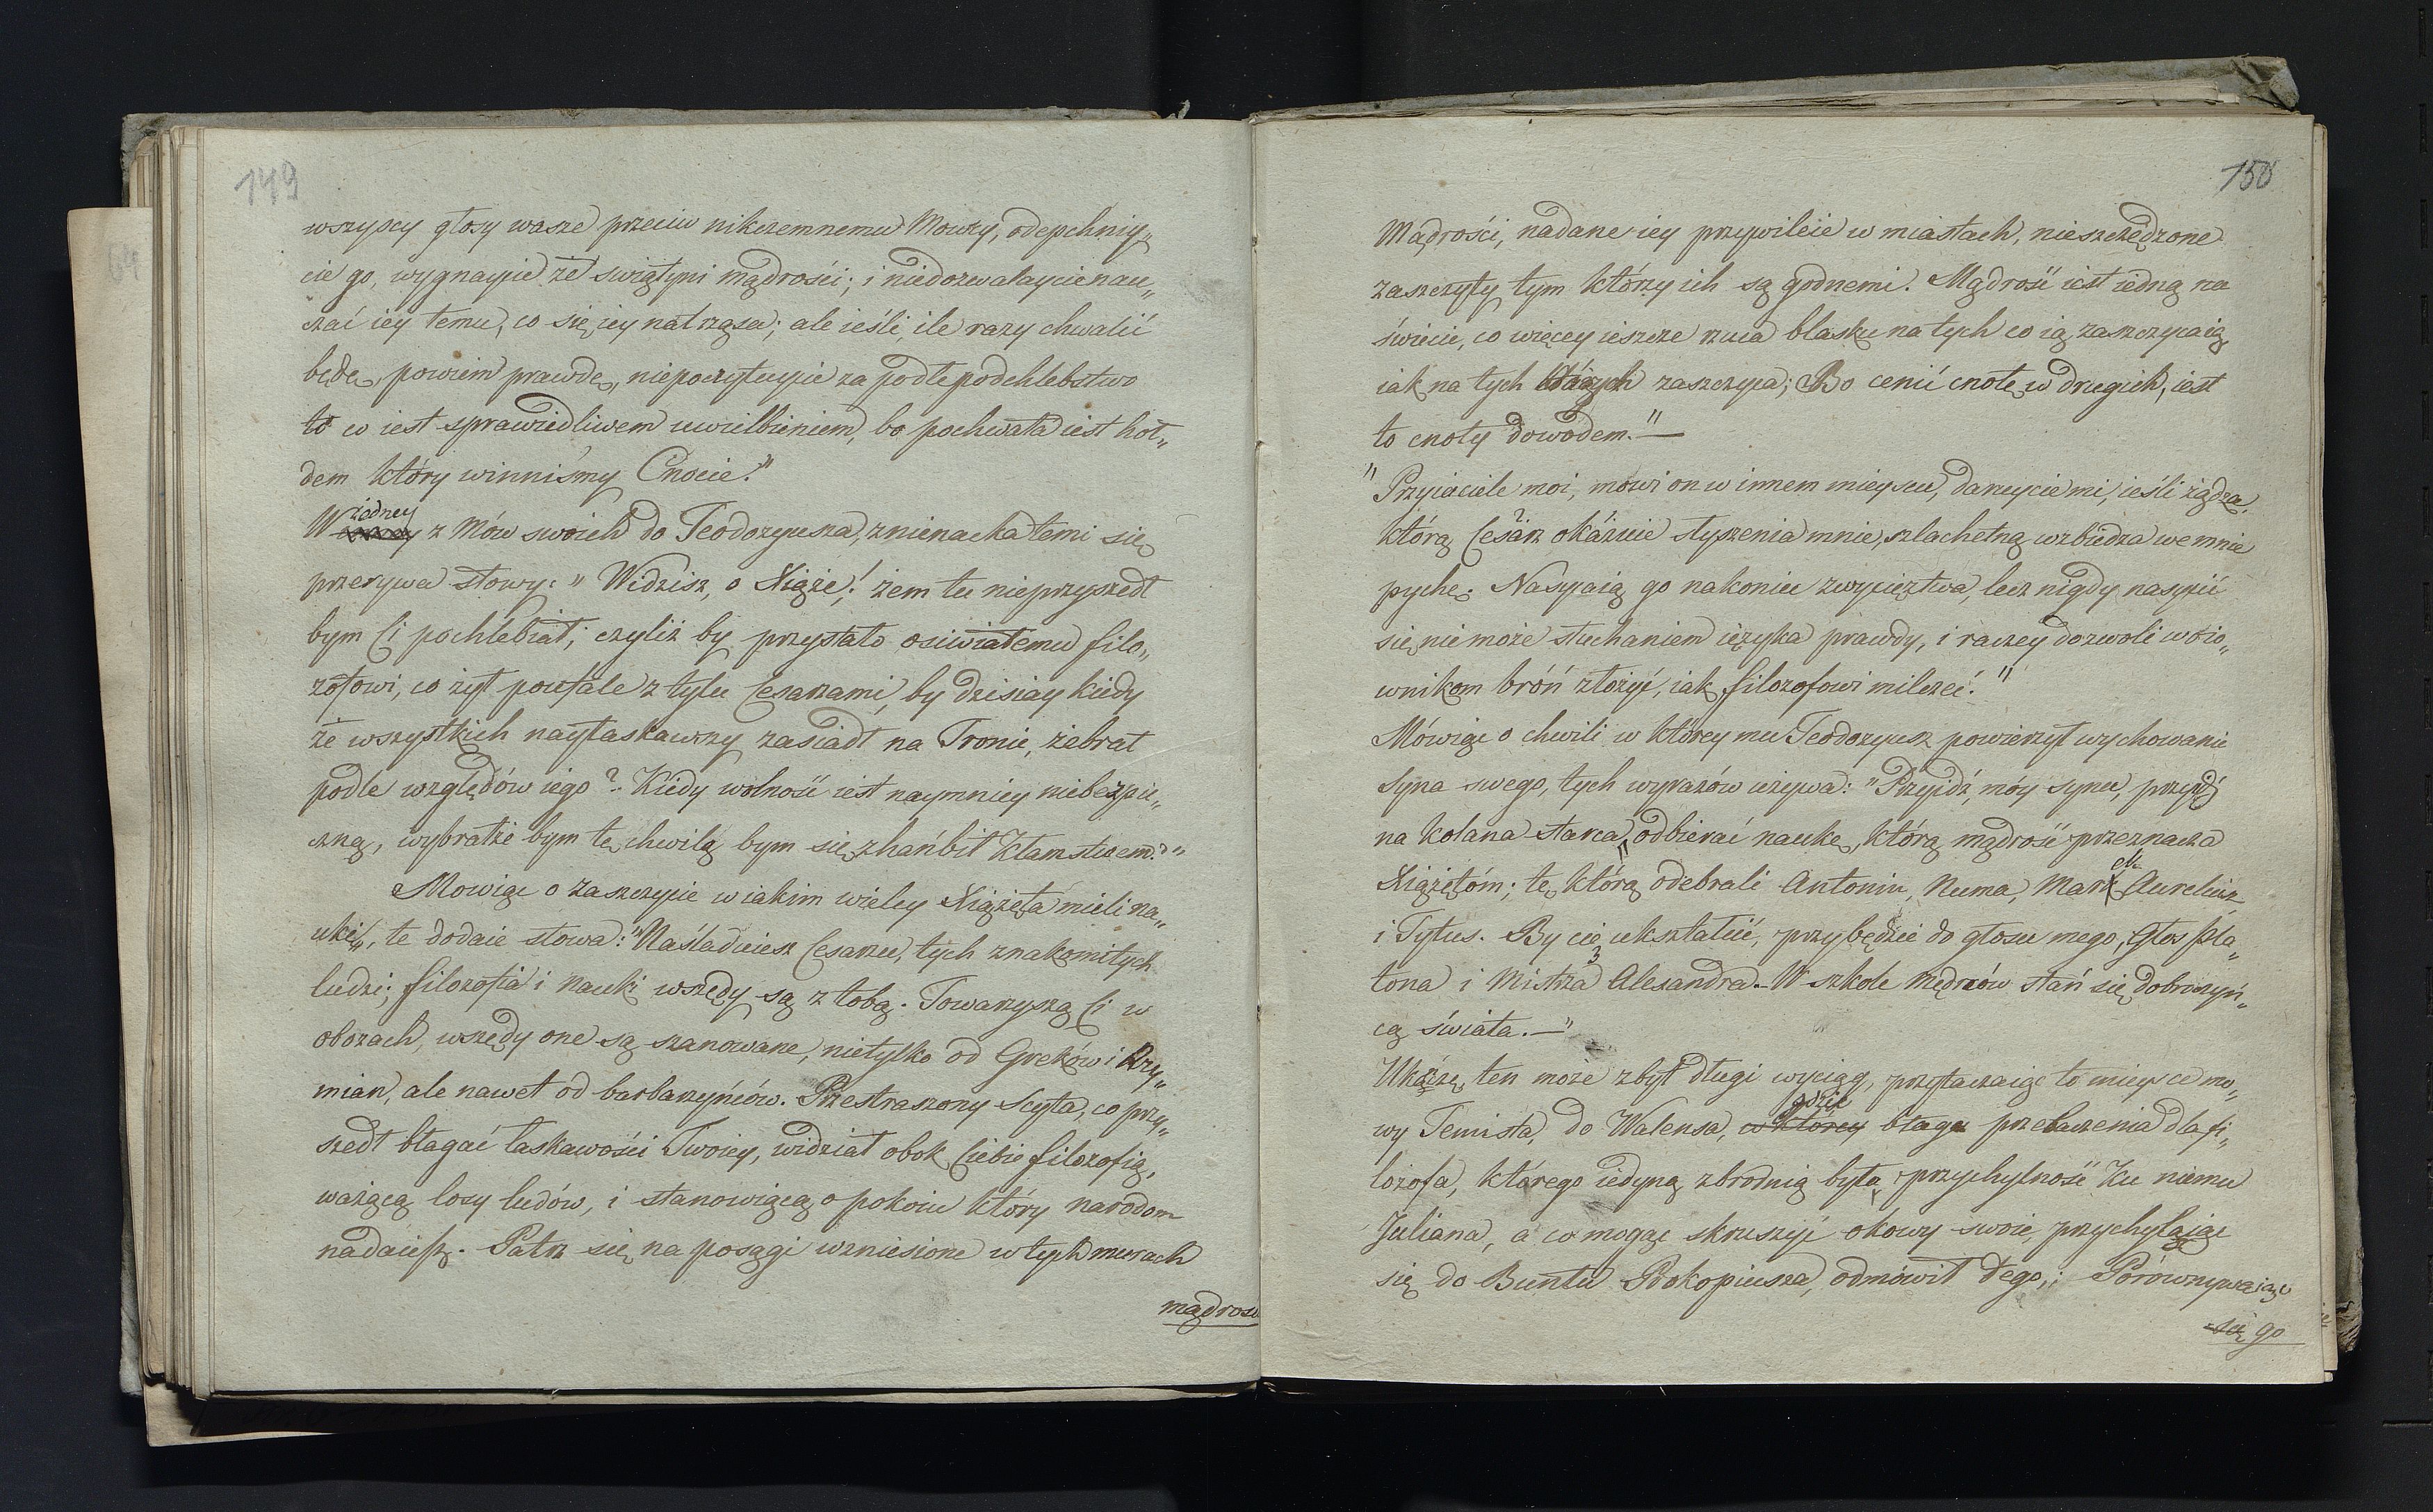 149
wszyscy głosy wasze przeciw nikczemnemu Mowcy, odepchniy„
cie go, wygnaycie ze swiątyni mądrości; i niedozwalaycie nau„
czać iey temu, co się iey natrząsa; ale ieśli, ile razy chwalić
będę, powiem prawdę, niepoczytuycie za podłe podchlebstwo
to co iest sprawiedliwem uwielbieniem, bo pochwała iest hoł„
dem który winniśmy Cnocie."
W iedney z Mów swoich do Teodozyusza, znienacka temi się
przerywa słowy: „Widzisz, o Xiąże! żem tu nieprzyszedł
bym Ci pochlebiał; czyliż by przystało osiwiałemu filo„
zofowi, co żył poufale z tylu Cesarzami, by dzisiay kiedy
ze wszystkich nayłaskawszy zasiadł na Tronie, żebrał
podle względów iego? Kiedy wolność iest naymniey niebezpie„
czną, wybrałże bym tę chwilę bym się zhańbił kłamstwem?"
Mowiąc o zaszczycie w iakim wielcy Xiążęta mieli na„
ukę, te dodaie słowa: „Naśladuiesz Cesarzu, tych znakomitych
ludzi; filozofia i Nauki wszędy są z tobą. Towarzyszą Ci w
obozach, wszędy one są szanowane, nietylko od Greków i Rzy„
mian, ale nawet od barbarzyńców. Przestraszony Scyta, co przy„
szedł błagać łaskawości Twoiey, widział obok Ciebie filozofią,
ważącą losy ludów, i stanowiącą o pokoiu który narodom
nadaiesz. Patrz się na posągi wzniesione w tych murach
mądrości
150
Mądrości, nadane iey przywileie w miastach, nieszczędzone
zaszczyty tym którzy ich są godnemi. Mądrość iest iedną na
świecie, co więcey ieszcze rzuca blasku na tych co ią zaszczycaią,
iak na tych których zaszczyca; Bo cenić cnotę w drugich, iest
to cnoty dowodem." —
"Przyiaciele moi, mówi on w innem mieyscu, daruycie mi, ieśli żądza
którą Cesarz okázuie słyszenia mnie, szlachetną wzbudza we mnie
pychę. Nasycaią go nakoniec zwycięztwa, lecz nigdy nasycić
się nie może słuchaniem ięzyka prawdy, i raczey dozwoli woio„
wnikom broń złożyć, iak filozofowi milczeć."
Mówiąc o chwili w którey mu Teodozyusz powierzył wychowanie
Syna swego, tych wyrazów używa: "Przyidź, móy synu, przyidź
na kolana starca, odbierać naukę, którą mądrość przeznacza
Xiążętóm; tę którą odebrali Antonin, Numa, Marek Aureliusz
i Tytus. By cię ukształcić, przybędzie do głosu mego, Głos Pla„
tona i Mistrza Alesandra. W szkole Mędrców stań się dobroczyń„
cą świata. —"
Ukończę, ten może zbyt długi wyciąg, przytaczaiąc to mieysce mo„
wy Temista, do Walensa, w którey gdzie błaga przebaczenia dla fi„
lozofa, którego iedyną zbrodnią była przychylność ku niemu
Juliana, a co mogąc skruszyć okowy swoie, przychylaiąc
się do Buntu Prokopiusza, odmówił tego; Porównywaiąc
się go